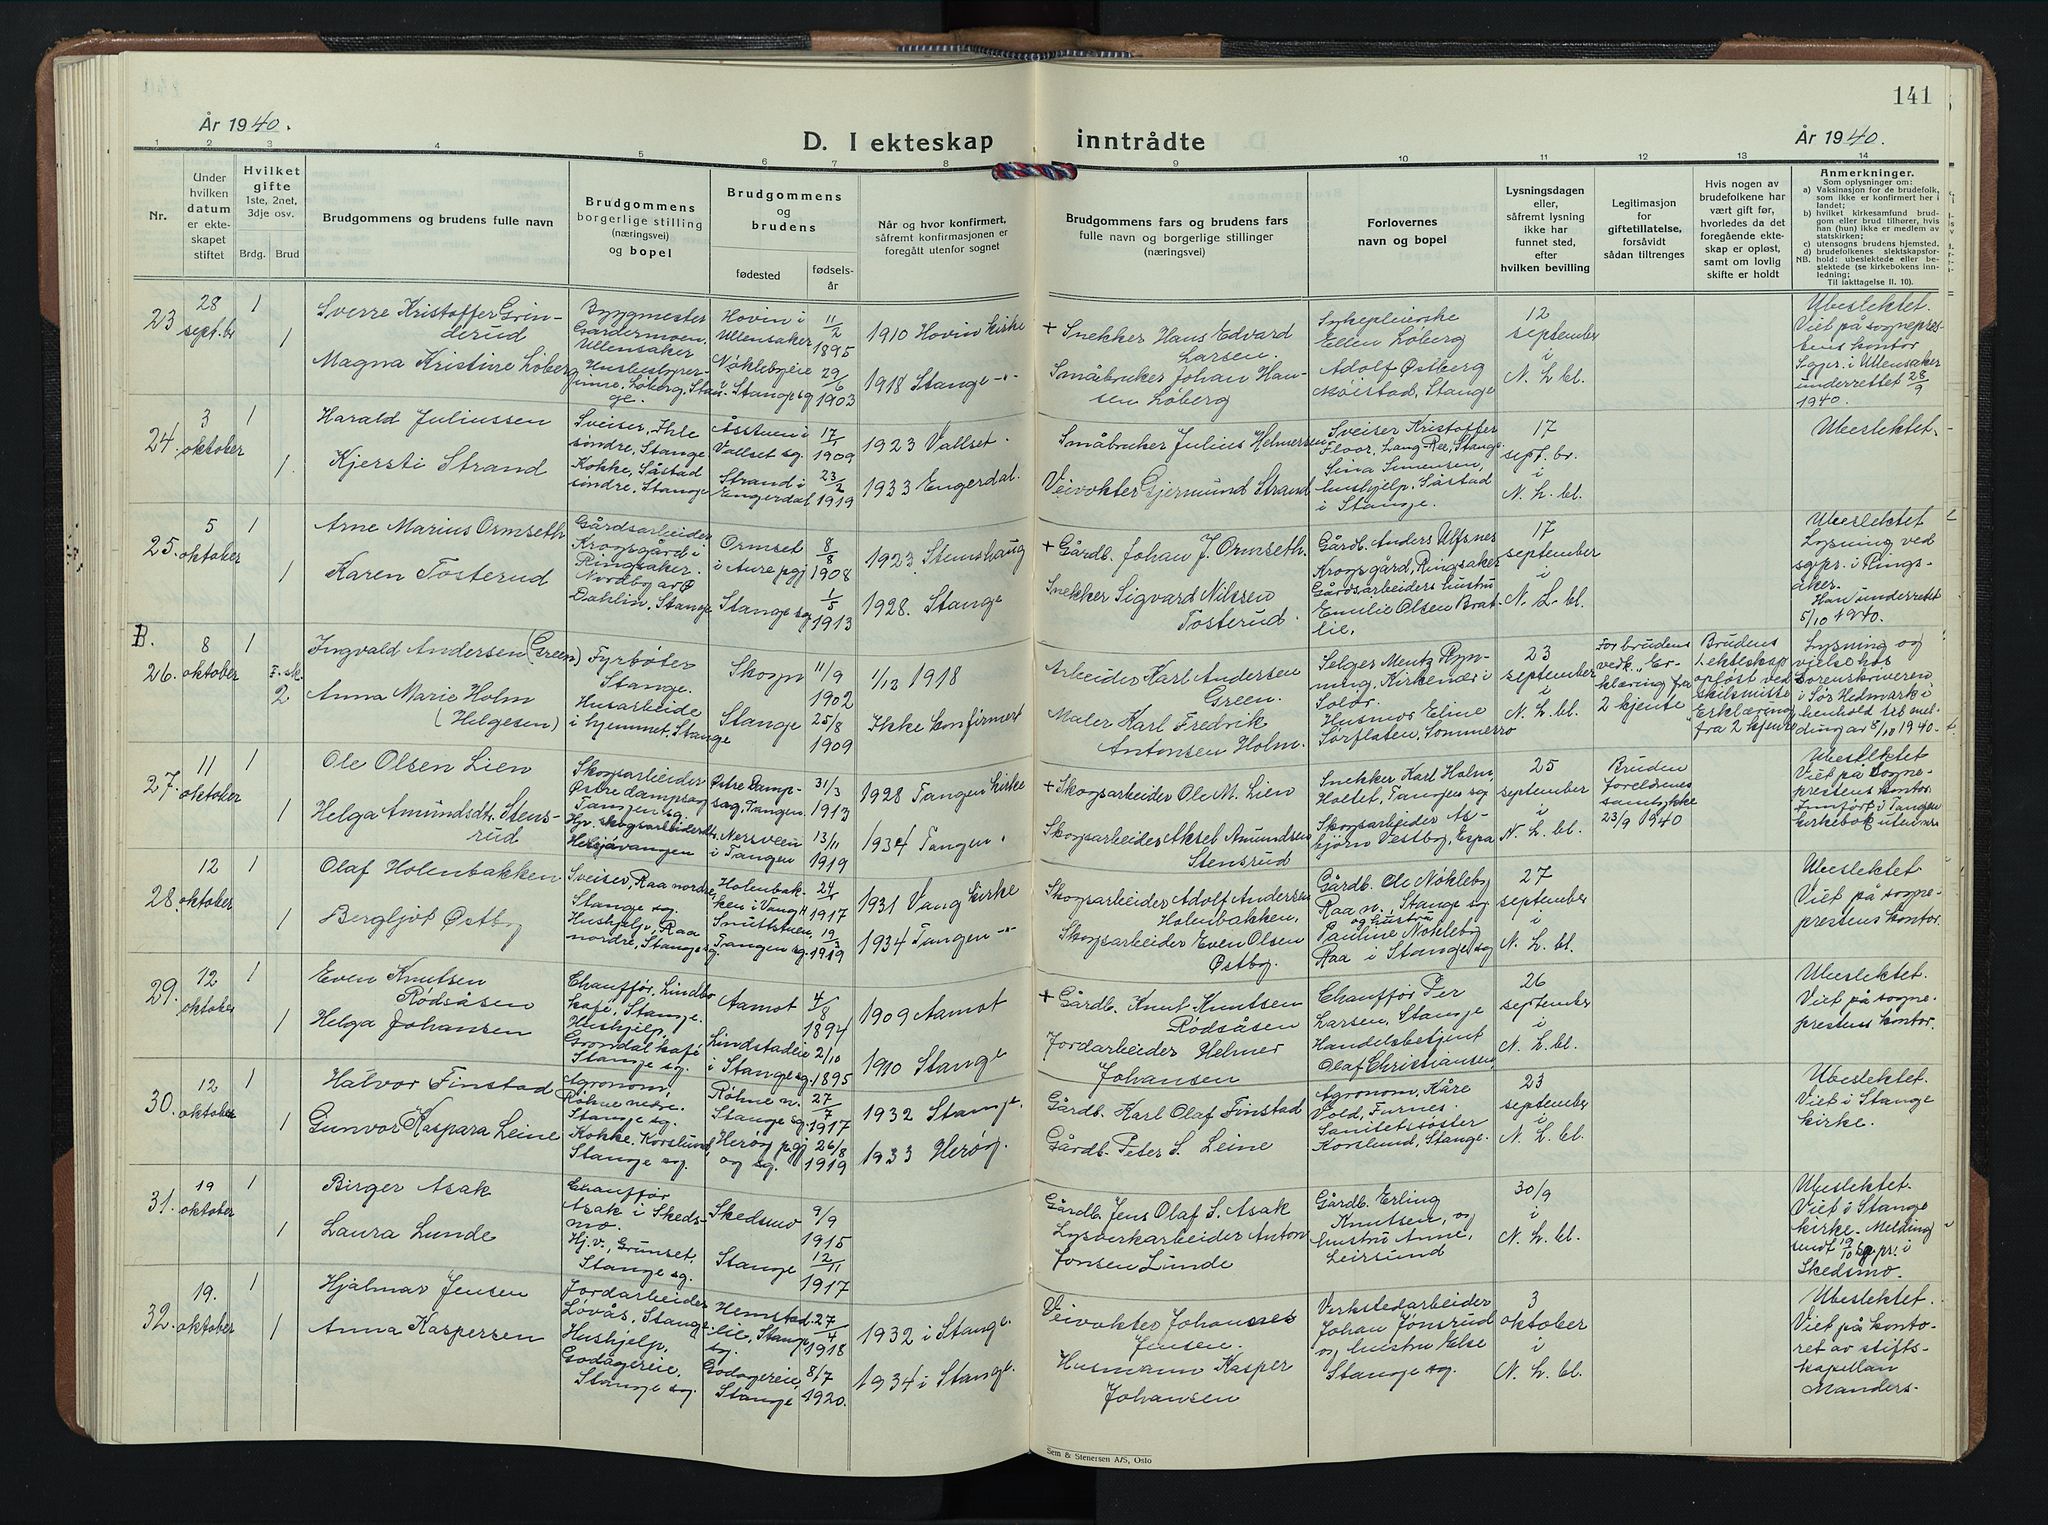 141
År 1940.
D. I ekteskap inntrådte
År 1940.
1 2 3 4 5 6 7 8 9 10 11 12 13 14
Nr.
Under hvilken datum er ekteskapet stiftet
Hvilket gifte 1ste, 2net, 3dje osv.
Brdg. Brud
Brudgommens og brudens fulle navn
Brudgommens borgerlige stilling (næringsvei) og bopel
Brudgommens og brudens
fødested
fødselsår
Når og hvor konfirmert, såfremt konfirmasjonen er foregått utenfor sognet
Brudgommens fars og brudens fars fulle navn og borgerlige stillinger (næringsvei)
Forlovernes navn og bopel
Lysningsdagen eller, såfremt lysning ikke har funnet sted, efter hvilken bevilling
Legitimasjon for giftetillatelse, forsåvidt sådan tiltrenges
Hvis nogen av brudefolkene har vært gift før, hvorledes da det foregående ekteskap er opløst, samt om lovlig skifte er holdt
Anmerkninger.
Som oplysninger om:
a) Vaksinasjon for de brudefolk, som ikke er konfirmert her i landet;
b) hvilket kirkesamfund brudgom eller brud tilhører, hvis han (hun) ikke er medlem av statskirken;
c) utensogns brudens hjemsted.
d) brudefolkenes slektskapsforhold: ubeslektede eller beslektede (se kirkebokens innledning;
Til iakttagelse II. 10).
23
28 sept.br
1
1
Sverre Kristoffer Grinderud
Magna Kristine Løberg
Byggmester Gardermoen, Ullensaker
Husbestyrerinne, Løberg, Stange.
Hovin i Ullensaker
Nøklebyeie i Stange sg
11/2 1895
29/6 1903
1910 Hovin kirke
1918 Stange -"-
+ Snekker Hans Edvard Larsen.
Småbruker Johan Hansen Løberg
Sykepleierske Ellen Løberg
Adolf Østberg Møistad, Stange
12 september i N. L. bl.
Ubeslektet.
Viet på sogneprestens kontor
Sogpr. i Ullensaker underrettet 28/9 1940.
24.
3 oktober
1
1.
Harald Juliussen
Kjersti Strand
Sveiser, Ihle søndre, Stange
Kokke, Såstad søndre, Stange
Åsstuen i Vallset sg.
Strand i Engerdal
17/1 1909
23/2 1919
1923 Vallset.
1933 Engerdal.
Småbruker Julius Helmersen
Veivokter Gjermund Strand
Sveiser Kristoffer Floor, Lang Ree, Stange
Sina Simensen, hushjelp, Såstad i Stange.
17 sept.br. i N. L. bl.
Ubeslektet.
25.
5 oktober
1
1
Arne Marius Ormseth
Karen Tosterud
Gårdsarbeider Krogsgård i Ringsaker.
Dahlin, Stange
Ormset i Aure pgj
Stange sg
8/8 1908
1/5 1913
1923. Stemshaug
1928. Stange
+ Gårdb. Johan J. Ormseth.
Snekker Sigvard Nilssen Tosterud.
Gårdb. Anders Ulfsnes Krogsgård, Ringsaker
Gårdsarbeiders hustru Emilie Olsen Bratlie.
17 september i N. L. bl.
Ubeslektet
Lysning ved sgpr. i Ringsaker.
Han underrettet 5/10 1940.
B.
26.
8 oktober
1
F.sk. 2
Ingvald Andersen (Green)
Anna Marie Holm (Helgesen)
Fyrbøter Stange.
Husarbeide i hjemmet, Stange
Skogn
Stange
11/9 1902
25/8 1909
1/12 1918
Ikke konfirmert
Arbeider Karl Andersen Green.
Maler Karl Fredrik Antonsen Holm.
Selger Mentz Rynning, Kirkenær i Solør.
Husmor Eline Sørflaten, Sommerro
23 september i N. L. bl.
For brudens vedk. Erklæring fra 2 kjente
Brudens ekteskap opløst ved skilsmisse Erklæring fra 2 kjente
Lysning og vielse hos Sorenskriveren i Sør Hedmark i henhold til melding av 8/10 1940.
27.
11 oktober
1
1
Ole Olsen Lien
Helga Amundsdtr. Stensrud
Skogsarbeider Østre dampsag Tangen sg.
Hjv. skogsarbeiderdtr Helsjavangen
Østre Dampsag, Tangen.
Nersveen i Tangen
31/3 1913
13/11 1919
1928 Tangen kirke
1934 Tangen.
+ Skogsarbeider Ole M. Lien
Skogsarbeider Aksel Amundsen Stensrud
Snekker Karl Holm, Holtet, Tangen sg
Skogsarbeider Asbjørn Vestby, Espa
25 september i N. L. bl.
Bruden foreldrenes samtykke 23/9 1940
Ubeslektet
Viet på Sogneprestens kontor.
Innført i Tangen kirkebok uten nr.
28.
12 oktober
1
1
Olaf Holenbakken
Bergljot Østby
Sveiser, Raa nordre, Stange sg
Hushjelp, Raa nordre, Stange sg.
Holenbakken i Vang H
Snuttstuen, Tangen sg.
24/1 1917
19/3 1919
1931 Vang kirke
1934 Tangen -"-
Skogsarbeider Adolf Andersen Holenbakken,
Skogsarbeider Even Olsen Østby.
Gårdb. Ole Nøkleby Raa n., Stange sg
og hustru Pauline Nøkleby Raa i Stange sg
27 september i N. L. bl.
Ubeslektet
Viet på sogneprestens kontor.
29.
12 oktober
1
1
Even Knutsen Rødsåsen
Helga Johansen
Chauffør, Lindbo kafé, Stange.
Hushjelp, Grøndal kafé Stange sg.
Aamot
Lindstadeie i Stange sg.
4/8 1894
2/10 1895
1909 Aamot
1910 Stange
+ Gårdb. Knut Knutsen Rødsåsen
Jordarbeider Helmer Johansen
Chauffør Per Larsen, Stange
Handelsbetjent Olaf Christiansen,
26 september i N. L. bl.
Ubeslektet.
Viet på sogneprestens kontor.
30.
12 oktober
1
1
Halvor Finstad
Gunvor Kaspara Leine
Agronom, Røhne nedre. Stange sg.
Kokke, Korslund, Stange sg.
Røhne n. Stange sg.
Herøy pgj og sg.
27/7 1917
26/8 1919
1932 Stange.
1933 Herøy.
Gårdb. Karl Olaf Finstad
Gårdb. Peter S. Leine
Agronom, Kåre Vold, Furnes.
Sanitetssøster Korslund, Stange.
23 september i N. L. bl.
Ubeslektet.
Viet i Stange kirke.
31.
19 oktober
1
1
Birger Asak
Laura Lunde
Chauffør Asak i Skedsmo.
Hj.v., Grunset, Stange sg.
Skedsmo
Stange
9/9 1915
12/11 1917
Gårdb. Jens Olaf S. Asak
Lysverkarbeider Anton Jonsen Lunde
Gårdb. Erling Knutsen, og hustru Anne, Leirsund
30/9 i N. L. bl.
Ubeslektet.
Viet i Stange kirke. Melding sendt 19/10 sg.pr. i Skedsmo.
32.
19. oktober
1
1
Hjalmar Jensen
Anna Kaspersen
Jordarbeider Løvås, Stange.
Hushjelp, Godagereie, Stange sg.
Hemstadlie, Stange sg.
Godagereie, Stange
27/4 1918
8/7 1920.
1932 i Stange.
1934 i Stange.
Veivokter Johannes Jensen.
Husmann Kasper Johansen
Verkstedarbeider Johan Jønsrud og hustru Else Stange sg.
3 oktober i N. L. bl.
Ubeslektet.
Viet på kontoret av stiftskapellan Manders-
Sem & Stenersen A/S, Oslo